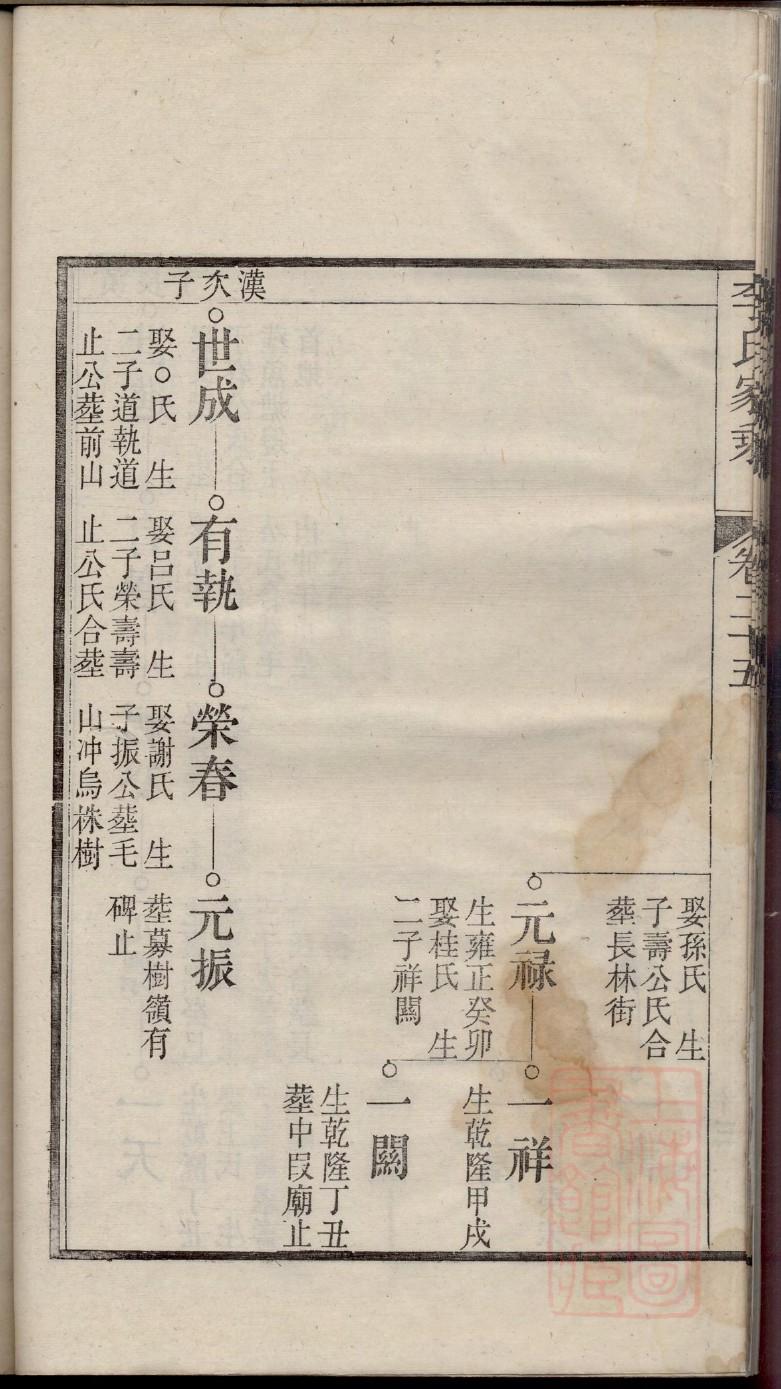 李氏家乘
卷二十五
娶孫氏　生
子壽公氏合
塟長林街
元禄
生雍正癸卯
娶桂氏　生
二子祥闗
一祥
生乾隆甲戌
一闗
生乾隆丁丑
塟中叚廟止
漢次子
世成
娶○氏　生
二子道執道
止公塟前山
有執
娶呂氏　生
二子榮壽壽
止公氏合塟
榮春
娶謝氏　生
子振公塟毛
山冲烏株樹
元振
塟募樹嶺有
碑止